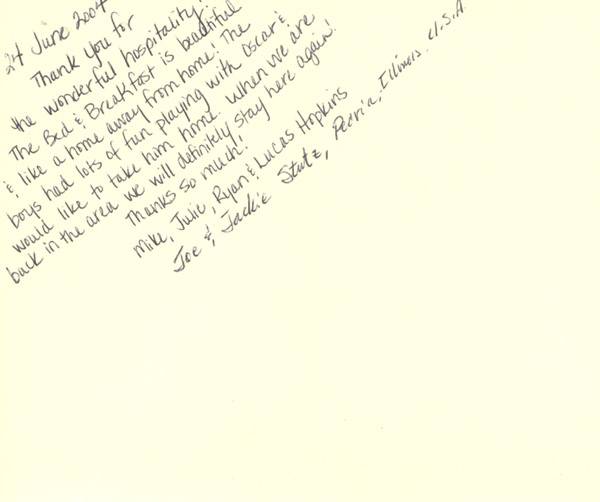 24 June 2004
Thank you for
the wonderful hospitality!
The Bed & Breakfast is beautiful
& like a home away from home! The
boys had lots of fun playing with Oscar &
would like to take him home. When we are
back in the area we will definitely stay here again!
Thanks so much!
Mike, Julie, Ryan & Lucas Hopkins
Joe & Jackie Stutz, Peoria, Illinois. U.S.A